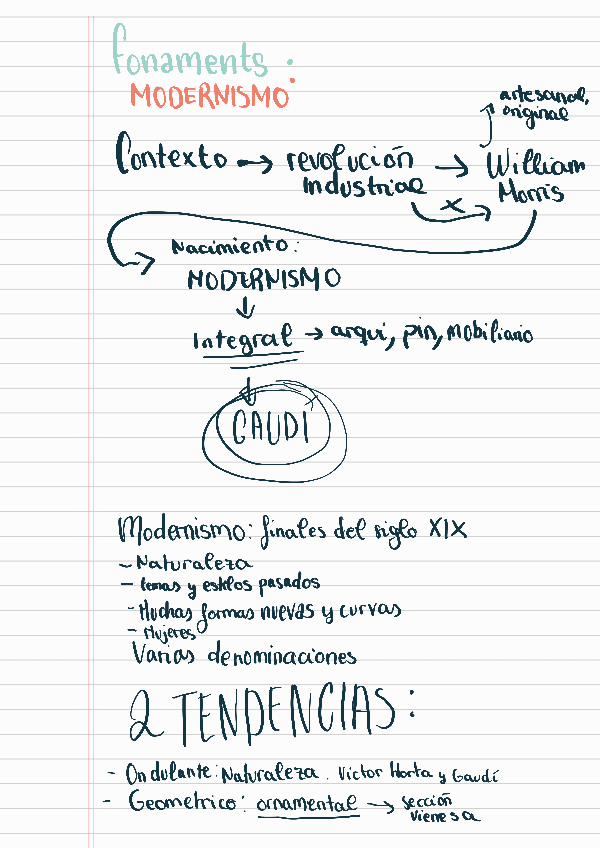 Fonaments:
MODERNISMO
artesanal,
original
Contexto → revolución → William
Industrial Morris
x
Nacimiento:
MODERNISMO
↓
Integral → arqui, pin, mobiliario
↓
GAUDÍ
Modernismo: finales del siglo XIX
- Naturaleza
- temas y estilos pasados
- Muchas formas nuevas y curvas
- Mujeres
Varias denominaciones
2 TENDENCIAS:
- Ondulante: Naturaleza. Victor Horta y Gaudí
- Geometrico: ornamental → sección
vienesa